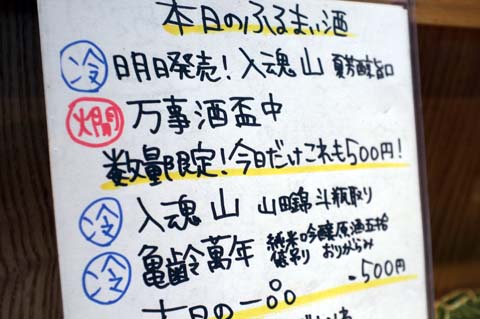 本日のふるまい酒
冷 明日発売! 入魂山 夏芳醇旨口
燗 万事酒盃中
数量限定!今日だけこれも500円!
冷 入魂山 山田錦斗瓶取り
冷 亀齢萬年 純米吟醸原酒五拾
おりがらみ
-500円
本日の一品